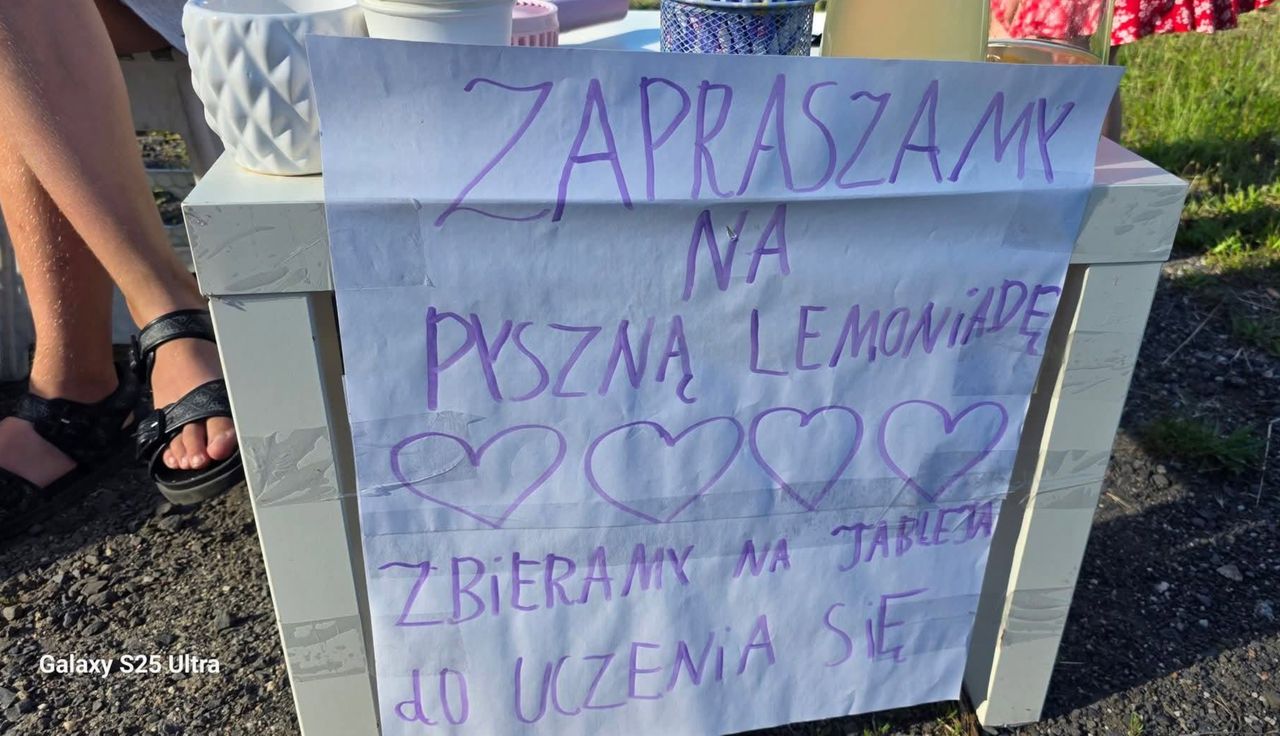 ZAPRASZAMY
NA
PYSZNĄ LEMONiADĘ
ZBiERAMY NA TABLETA
dO UCZENiA SiĘ
Galaxy S25 Ultra